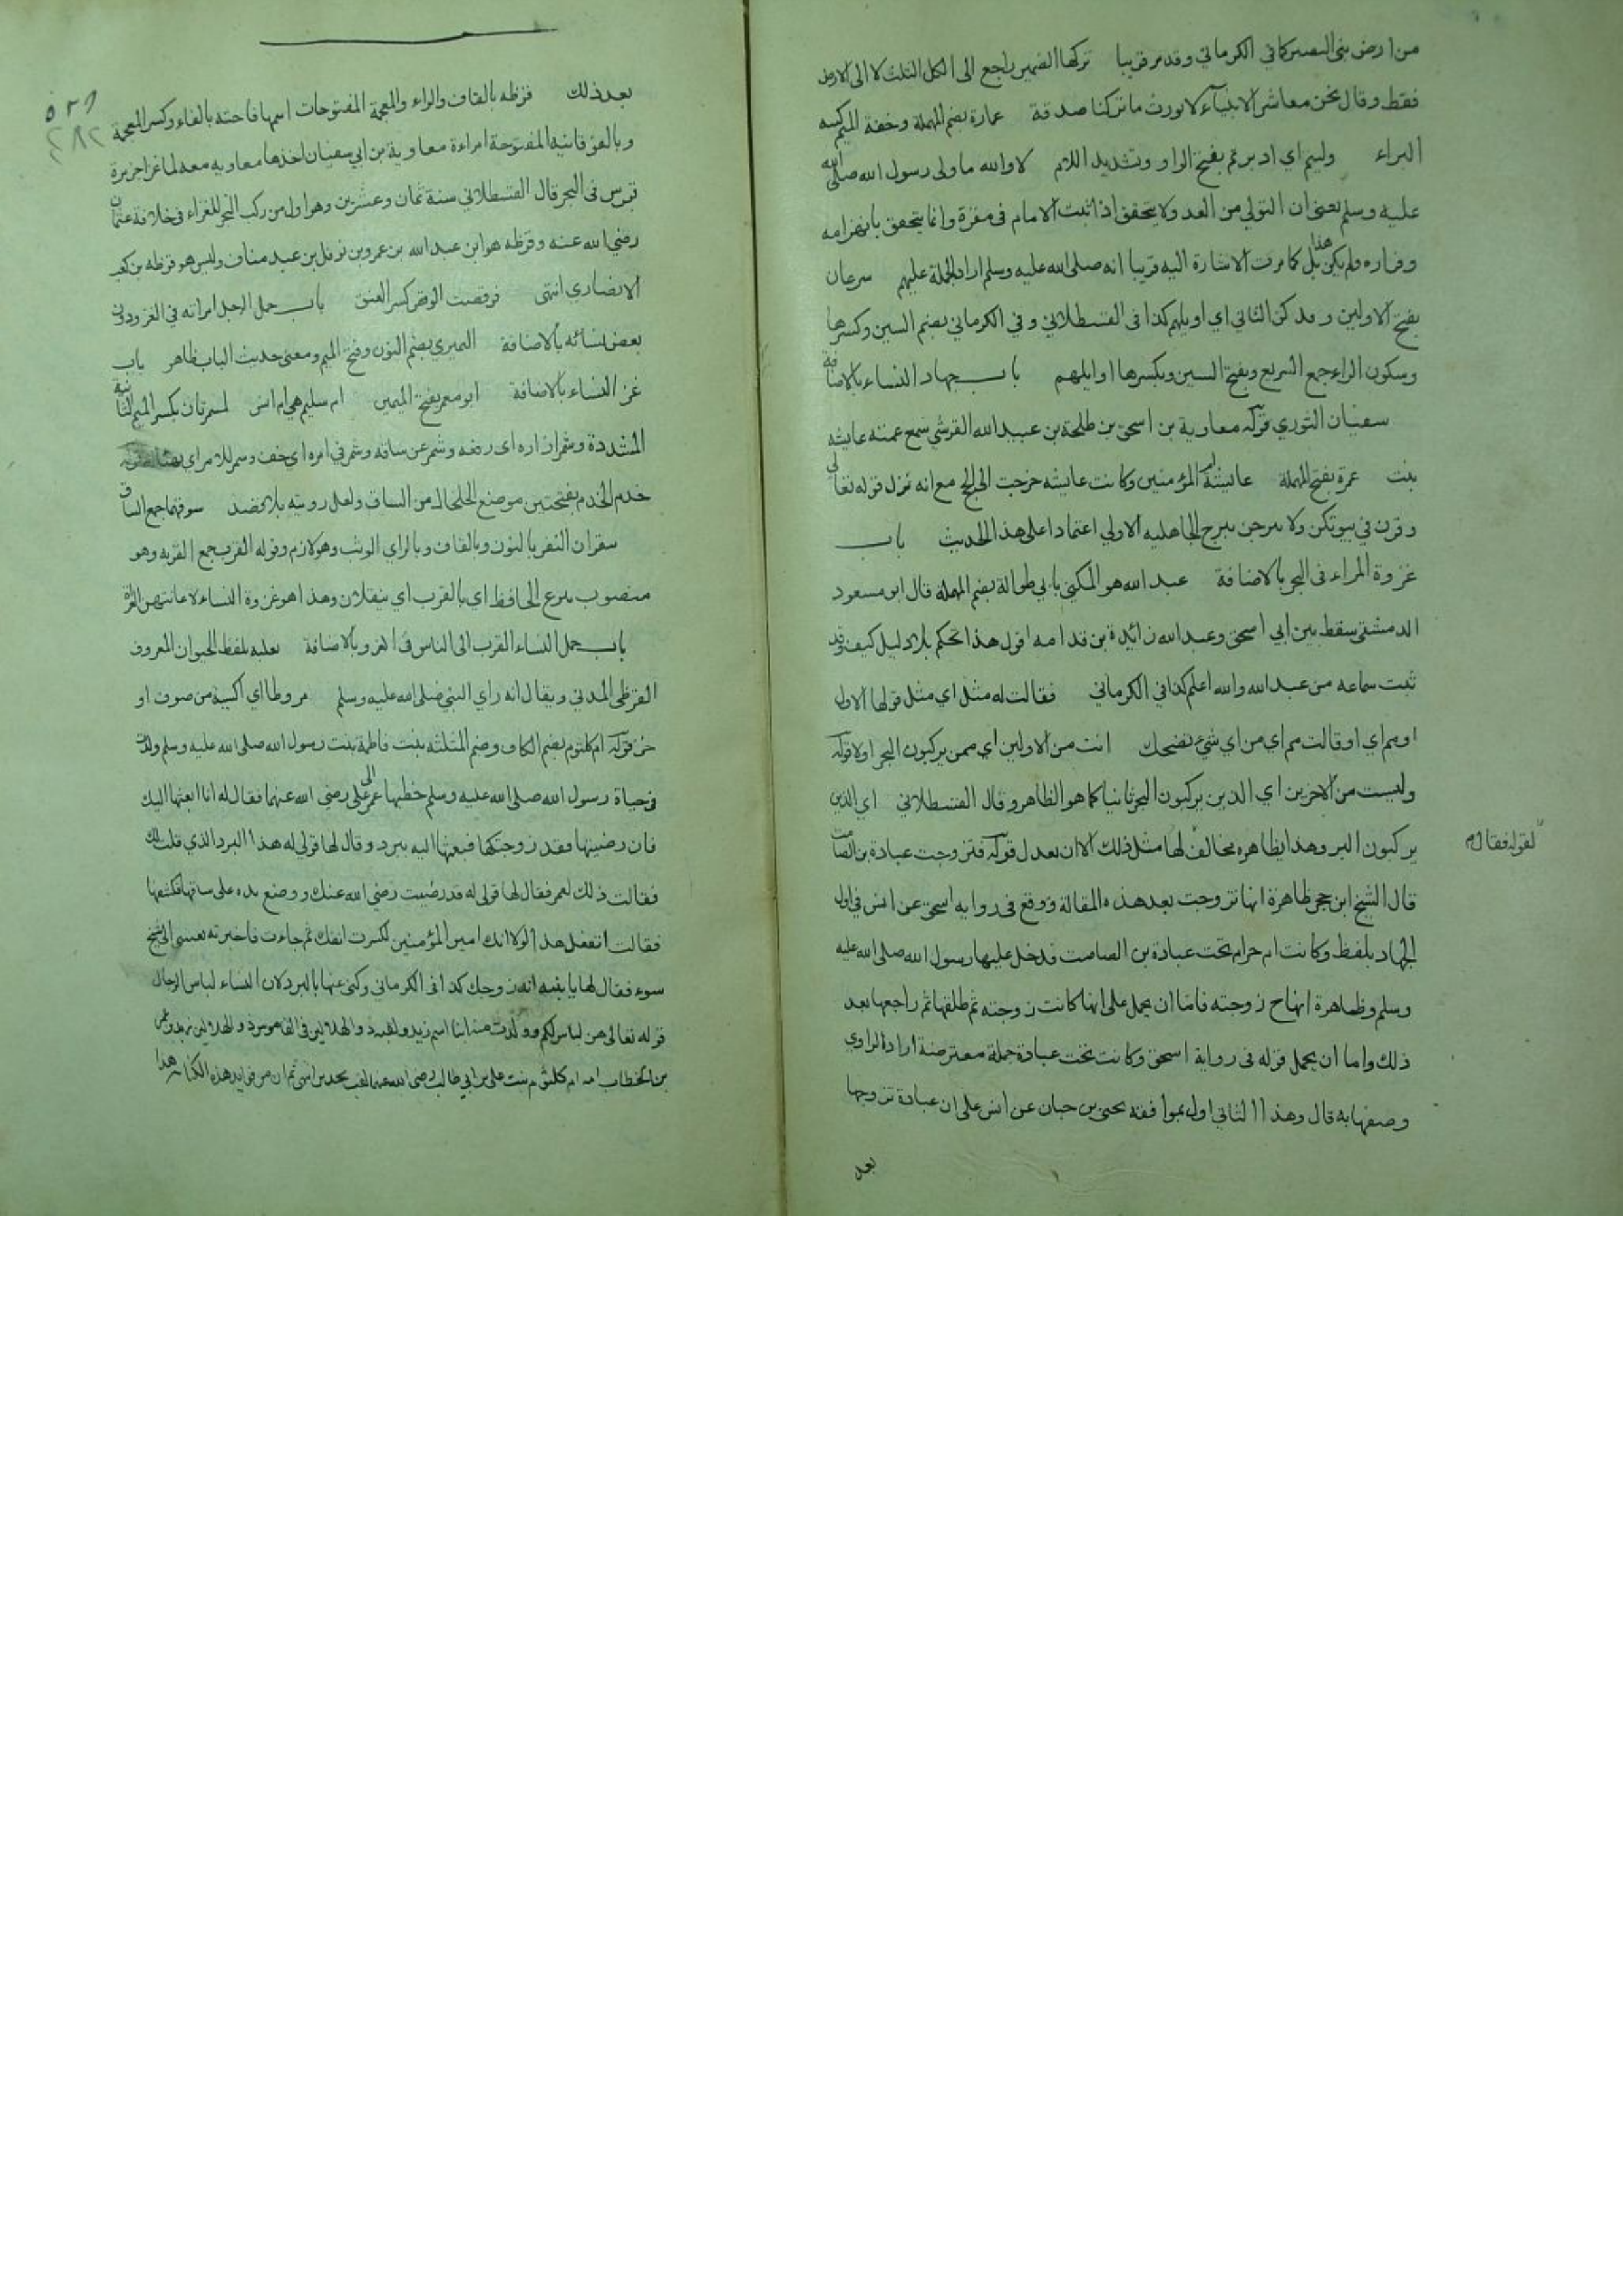 من ارض بني النضير كما في الكرماني وقد مر قريبا تركها الضمير راجع الى الكل الثلث لا الى الارض
فقط وقال نحن معاشر الانبياء لا نورث ما تركنا صدقة عمارة بضم المهملة وخفة الميم كنيه
البراء وليتم اي ادبرتم بفتح الواو وتشديد اللام لا والله ما ولى رسول الله صلى الله
عليه وسلم يعني ان التولي من العد ولا يتحقق اذا ثبت الامام في مقره وانما يتحقق بانهزامه
وفراره ولم يكن هذا بل كما مرت الاشارة اليه قريبا انه صلى الله عليه وسلم اراد الحملة عليهم سرعان
بفتح الاولين وقد يسكن الثاني اي اويلهم كذا في القسطلاني وفي الكرماني بضم السين وكسرها
وسكون الراء جمع السريع وبفتح السين وبكسرها اوايلهم باب جهاد النساء بالاضافة
سفيان الثوري قوله معاوية بن اسحق بن طلحة بن عبيد الله القرشي سمع عمته عايشه
بنت عمرة بفتح المهملة عايشة ام المؤمنين وكانت عايشه خرجت الى الحج مع انه نزل قوله تعالى
وقرن في بيوتكن ولا تبرجن تبرج الجاهليه الاولى اعتمادا على هذا الحديث باب
غزوة المراءة في البحر بالاضافة عبد الله هو المكنى بابي طوالة بضم المهملة قال ابو مسعود
الدمشقي سقط بين ابي اسحق وعبد الله زائدة بن قدامه اقول هذا تحكم بلا دليل كيف وقد
ثبت سماعه من عبد الله والله اعلم كذا في الكرماني فقالت له مثل اي مثل قولها الاول
او مم اي او قالت مم اي من اي شيء تضحك انت من الاولين اي ممن يركبون البحر اولا قوله
ولست من الاخرين اي الذين يركبون البحر ثانيا كما هو الظاهر وقال القسطلاني اي الذين
يركبون البر وهذا ظاهره مخالف لها مثل ذلك الا ان يعدل قوله فتزوجت عبادة بن الصامت
لقوله فقال
قال الشيخ ابن حجر ظاهرة انها تزوجت بعد هذه المقالة ووقع في روايه اسحق عن انس في اول
الجهاد بلفظ وكانت ام حرام تحت عبادة بن الصامت فدخل عليها رسول الله صلى الله عليه
وسلم وظاهرة انها ح زوجته فاما ان يحمل على انها كانت زوجته ثم طلقها ثم راجعها بعد
ذلك واما ان يحمل قوله في رواية اسحق وكانت تحت عبادة جملة معترضة اراد الراوي
وصفها به قال وهذا الثاني اولى بموافقه يحيى بن حبان عن انس على ان عبادة تزوجها
بعد
٥٢٩
٢٨٢
بعد ذلك قرظه بالقاف والراء والمعجمة المفتوحات اسمها فاخته بالفاء وكسر المعجمة
وبالفوقانية المفتوحة امراءة معاوية بن ابي سفيان اخذها معاويه معه لما غزا جزيرة
قبرس في البحر قال القسطلاني سنة ثمان وعشرين وهو اول من ركب البحر للغزاء في خلافة عثمان
رضي الله عنه وقرظه هو ابن عبد الله بن عمرو بن نوفل بن عبد مناف وليس هو قرظه بن كعب
الانصاري انتهى فوقصت الوقص كسر العنق باب حمل الرجل امراته في الغزو دون
بعض نسائه بالاضافة النميري بضم النون وفتح الميم ومعنى حديث الباب ظاهر باب
غزو النساء بالاضافة ابو معمر بفتح الميمين ام سليم هي ام انس لمشمرتان بكسر الميم الثانية
المشددة وشمر ازاره اي رفعه وشمر عن ساقه وشمر في امره اي خف وشمر للامر اي
خدم الخدم بفتحتين موضع الخلخال من الساق ولعل رويته بلا قصد سوقهما جمع الساق
تنقزان النقز بالنون وبالقاف وبالزاي الوثب وهو لازم وقوله القرب جمع القربه وهو
منصوب بنزع الخافظ اي بالقرب اي ينقلان وهذا هو غزوة النساء لاعانتهن الغزاة
باب حمل النساء القرب الى الناس في الغزو بالاضافة ثعلبه بلفظ الحيوان المعروف
القرظي المدني ويقال انه راي النبي صلى الله عليه وسلم مروطا اي اكسية من صوف او
خز قوله ام كلثوم بضم الكاف وضم المثلثه بنت فاطمة بنت رسول الله صلى الله عليه وسلم ولدت
في حياة رسول الله صلى الله عليه وسلم خطبها عمر الى علي رضي الله عنهما فقال له انا ابعثها اليك
فان رضيتها فقد زوجتكها فبعثها اليه ببرد وقال لها قولي له هذا البرد الذي قلت لك
فقالت ذلك لعمر فقال لها قولي له قد رضيت رضي الله عنك ووضع يده على ساقها فكشفها
فقالت اتفعل هذا لولا انك امير المؤمنين لكسرت انفك ثم جاءت فاخبرته بعثتني الى شيخ
سوء فقال لها يا بنيه انه زوجك كذا في الكرماني وكنى عنها بالبرد لان النساء لباس الرجال
قوله تعالى هن لباس لكم وولدت منه ابنا اسمه زيد ولقبه ذو الهلالين في القاموس ذو الهلالين زيد بن عمر
بن الخطاب امه ام كلثوم بنت علي بن ابي طالب رضي الله عنهما لقب بجديه انتهى ثم ان من فوايد هذه الكنايه هذا